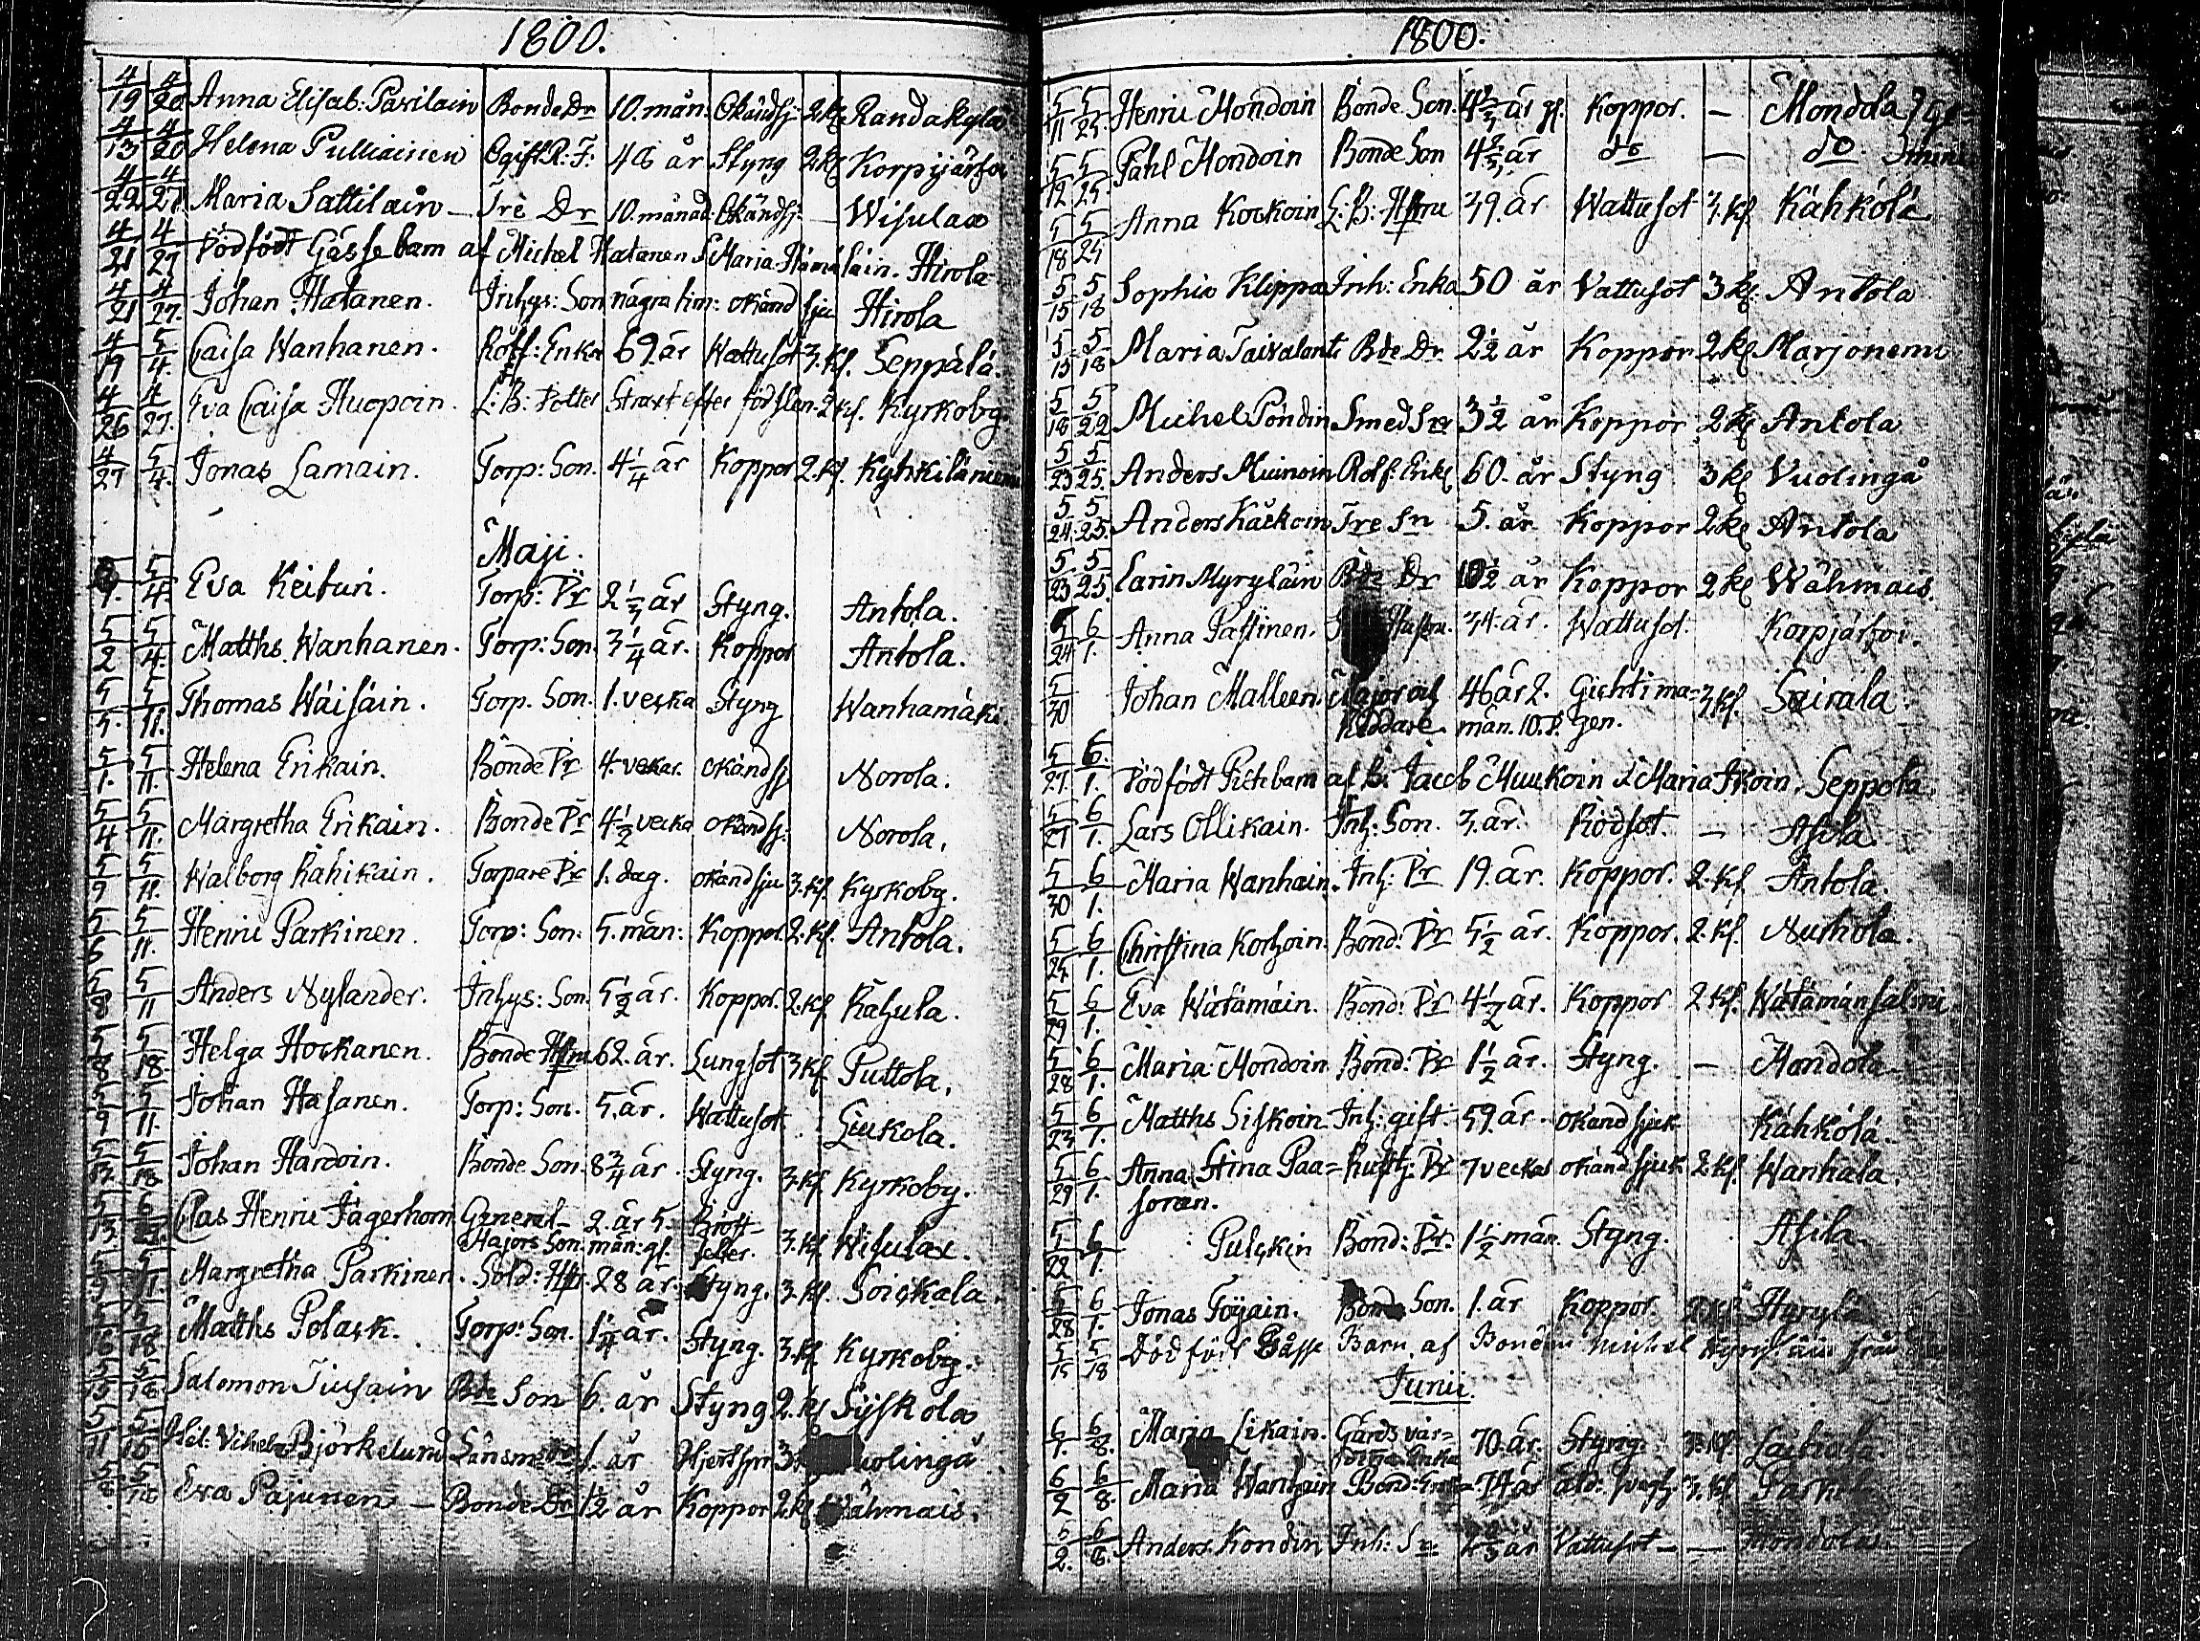 1800.
4/19 4/20 Anna Elisab: Pasilain Bonde Dr 10. mån: Okändsj: 2 kl Randakylä
4/13 4/20 Helena Pulliainen Ogift R: F: 48 år Styng 2 kl Korpijärfvi
4/22 4/27 Maria Sattilain — Tre Dr 10. månad: Okändsj: — Wisulax
4/21 4/27 Dödfödt Gåssebarn af Michel Hatanen & Maria Hämäläin. Hirola
4/21 4/27. Johan Hatanen. Inhys: Son några tim: okänd sju Hirola
4/19 5/4. Caisa Wanhanen. Rotf: Enka 69 år Wattusot 3. Kl. Seppälä.
4/26 4/27. Eva Caisa Huopoin. L: B: Dotter Straxt efter födslen. 2 Kl. Kyrkoby.
4/27 5/4. Jonas Lamain. Torp: Son. 4 1/4 år Koppor 2. Kl. Kyhkiläniemi
Maji.
5/1. 5/4. Eva Keituri. Torp: Dr 2 1/3 år Styng. Antola.
5/2 5/4. Matths. Wanhanen. Torp: Son. 3 1/4 år. Koppor Antola.
5/5. 5/11. Thomas Wäisäin. Torp. Son. 1. vecka Styng Wanhamäki.
5/1. 5/11. Helena Erikain. Bonde Dr 4. vekar. okändsj Norola.
5/4 5/11. Margretha Erikain. Bonde Dr 4 1/2 vecka okändsj: Norola.
5/9 5/11. Walborg Rahikain. Torpare Dr 1. dag. okändsju 3. Kl. Kyrkoby.
5/6 5/11. Henric Parkinen. Torp: Son. 5. mån: Koppor. 2. Kl. Antola.
5/8 5/11 Anders Nylander. Inhys: Son. 5 1/2 år. Koppor. 2. Kl. Rahula.
5/8 5/18. Helga Hockanen. Bonde Hstru 62. år. Lungsot 3 Kl. Puttola.
5/9 5/11. Johan Hasanen. Torp: Son. 5. år. Wattusot. Liukola.
5/13. 5/18. Johan Hardoin. Bonde Son. 8 3/4 år. Styng. 3. Kl. Kyrkoby.
5/13. Clas Henric Jägerhorn General-Majors Son. 2. år 5. mån: gl. Bröst-feber. 3. Kl. Wisulax.
5/9 5/11. Margretha Parkinen. Sold: Hstr. 28 år. Styng. 3. Kl. Soickala.
5/16 5/18 Matths Polack. Torp: Son. 1 1/4 år. Styng. 3. Kl. Kyrkoby.
5/15 5/18 Salomon Tiusain Bde Son 6. år Styng 2. kl Syskola
5/11 5/18 Hel: Vihelm Björkelund Länsm 1. år Hjertspr 3 uolingå
5/8. 5/18 Eva Pajunen — Bonde Dr 1 1/2 år Koppor 2 kl. Wähmais.
1800.
5/11 5/25. Henric Mondoin Bonde. Son. 4 2/3 år gl. Koppor. — Mondola
5/12 5/25. Påhl Mondoin Bonde Son 4 2/3 år do — do
5/18 5/25 Anna Kockoin L: B: Hstru 39. år Wattusot 3. Kl. Kähkölä
5/15 5/18 Sophia Klippa Inh: Enka 50 år Vattusot 3 kl. Antola
5/15 5/18 Maria Taivalanti Bde Dr 2 1/2 år Koppor 2 kl Marjoniemi
5/18 5/22 Michel Pöndin Smed Sn 3 1/2 år Koppor 2 kl Antola
5/23 5/25. Anders Muinoin Rotf: Enkl 60. år Styng 3 kl Vuolingå
5/24. 5/25. Anders Käckoin Tre Sn 5. år. Koppor 2 kl Antola
5/23 5/25. Carin Myryläin Bde Dr 10 1/2 år Koppor 2 kl Wähmais.
5/24 6/1. Anna Pastinen. Hustru. 34. år. Wattusot. Korpjärfvi.
5/30 Johan Malleen. Major och Riddare 46 år 2. mån. 10. d. Gicht i ma-gen. 3 Kl. Sairala
5/27. 6/1. Dödfödt Pichebarn af B: Jacob Muckoin & Maria Ikoin. Seppola.
5/27 6/1. Lars Ollikain. Inh: Son. 3. år. Rödsot. — Asila.
5/30 6/1. Maria Wanhain. Inh: Dr 19. år. Koppor. 2. Kl. Antola.
5/25 6/1. Christina Korhoin. Bond: Dr 5 1/2 år. Koppor. 2. Kl. Nurhola.
5/29 6/1. Eva Wätämäin. Bond: Dr 4 1/2 år. Koppor 2 Kl. Wätämänsalmi
5/28 6/1. Maria Mondoin Bond: Dr 1 1/2 år. Styng. — Mondola
5/23 6/1. Matths Siskoin Inh: gift. 59. år. okänd sjuk Kähkölä.
5/29 6/1. Anna Stina Paa=soran. Rusth: Dr 7 veckor okänd sjuk 2. Kl. Wanhala.
5/22 6/1. Pulckin Bond: Dr. 1 1/2 mån. Styng. Asila.
5/28 6/1. Jonas Töyain. Bond Son. 1. år Koppor. 2 Kl. Hyrylä
5/15 5/18 Dödfödt Gåsse Barn. af Bonden Michel Hyryläin från
Junii.
6/1. 6/8. Maria Likain. Gårdsvar= Enka 70. år. Styng. 3. Kl. Lautiala.
6/2 6/8. Maria Wanhain Bond: Enka 74 år åld: svagh. 3. Kl.
6/2. 6/8. Anders Kondin Inh: Sn 2 2/3 år Vattusot — — Mondola.